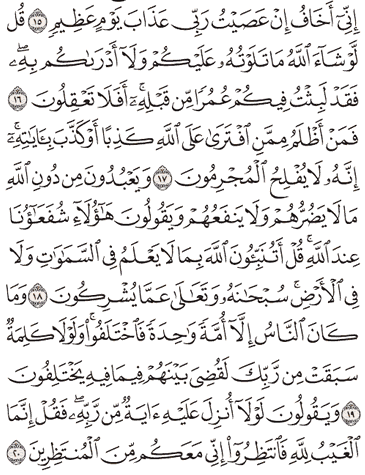 إِنِّىٓ أَخَافُ إِنْ عَصَيْتُ رَبِّى عَذَابَ يَوْمٍ عَظِيمٍ ١٥ قُل
لَّوْ شَآءَ ٱللَّهُ مَا تَلَوْتُهُۥ عَلَيْكُمْ وَلَآ أَدْرَىٰكُم بِهِۦ
فَقَدْ لَبِثْتُ فِيكُمْ عُمُرًا مِّن قَبْلِهِۦٓ أَفَلَا تَعْقِلُونَ ١٦
فَمَنْ أَظْلَمُ مِمَّنِ ٱفْتَرَىٰ عَلَى ٱللَّهِ كَذِبًا أَوْ كَذَّبَ بِـَٔايَـٰتِهِۦٓ
إِنَّهُۥ لَا يُفْلِحُ ٱلْمُجْرِمُونَ ١٧ وَيَعْبُدُونَ مِن دُونِ ٱللَّهِ
مَا لَا يَضُرُّهُمْ وَلَا يَنفَعُهُمْ وَيَقُولُونَ هَـٰٓؤُلَآءِ شُفَعَـٰٓؤُنَا
عِندَ ٱللَّهِ قُلْ أَتُنَبِّـُٔونَ ٱللَّهَ بِمَا لَا يَعْلَمُ فِى ٱلسَّمَـٰوَٰتِ وَلَا
فِى ٱلْأَرْضِ سُبْحَـٰنَهُۥ وَتَعَـٰلَىٰ عَمَّا يُشْرِكُونَ ١٨ وَمَا
كَانَ ٱلنَّاسُ إِلَّآ أُمَّةً وَٰحِدَةً فَٱخْتَلَفُوا۟ وَلَوْلَا كَلِمَةٌ
سَبَقَتْ مِن رَّبِّكَ لَقُضِىَ بَيْنَهُمْ فِيمَا فِيهِ يَخْتَلِفُونَ
١٩ وَيَقُولُونَ لَوْلَآ أُنزِلَ عَلَيْهِ ءَايَةٌ مِّن رَّبِّهِۦ فَقُلْ إِنَّمَا
ٱلْغَيْبُ لِلَّهِ فَٱنتَظِرُوٓا۟ إِنِّى مَعَكُم مِّنَ ٱلْمُنتَظِرِينَ ٢٠